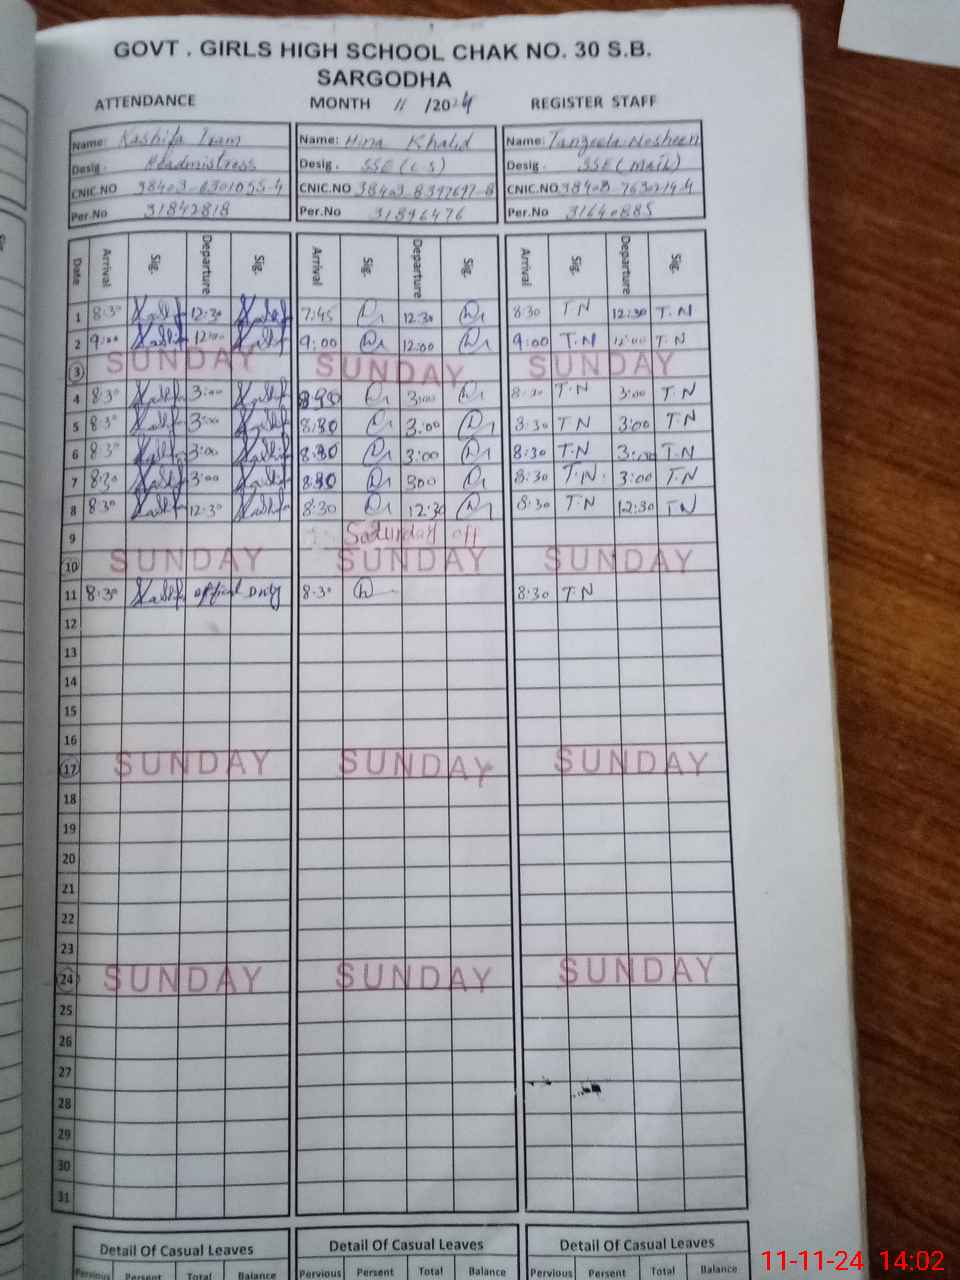 GOVT . GIRLS HIGH SCHOOL CHAK NO. 30 S.B.
SARGODHA
ATTENDANCE MONTH 11 /2024 REGISTER STAFF
Name: Kashifa Iram Name: Hina Khalid Name: Tanzeela Nosheen
Desig. Headmistress Desig. SSE(C.S) Desig. SSE(Math)
CNIC.NO CNIC.NO CNIC.NO
Per.No 31842818 Per.No 31896476 Per.No 31640885
Date Arrival Sig. Departure Sig. Arrival Sig. Departure Sig. Arrival Sig. Departure Sig.
1 8:30 12:30 7:45 12:30 8:30 T.N 12:30 T.N
2 9:00 12:00 9:00 12:00 9:00 T.N 12:00 T.N
3 SUNDAY SUNDAY SUNDAY
4 8:30 3:00 8:30 3:00 8:30 T.N 3:00 T.N
5 8:30 3:00 8:30 3:00 8:30 T.N 3:00 T.N
6 8:30 3:00 8:30 3:00 8:30 T.N 3:00 T.N
7 8:30 3:00 8:30 300 8:30 T.N. 3:00 T.N
8 8:30 12:30 8:30 12:30 8:30 T.N 12:30 T.N
9 Saturday off
10 SUNDAY SUNDAY SUNDAY
11 8:30 Duty 8:30 8:30 T.N
12
13
14
15
16
17 SUNDAY SUNDAY SUNDAY
18
19
20
21
22
23
24 SUNDAY SUNDAY SUNDAY
25
26
27
28
29
30
31
Detail Of Casual Leaves Detail Of Casual Leaves Detail Of Casual Leaves
Pervious Persent Total Balance Pervious Persent Total Balance Pervious Persent Total Balance
11-11-24 14:02